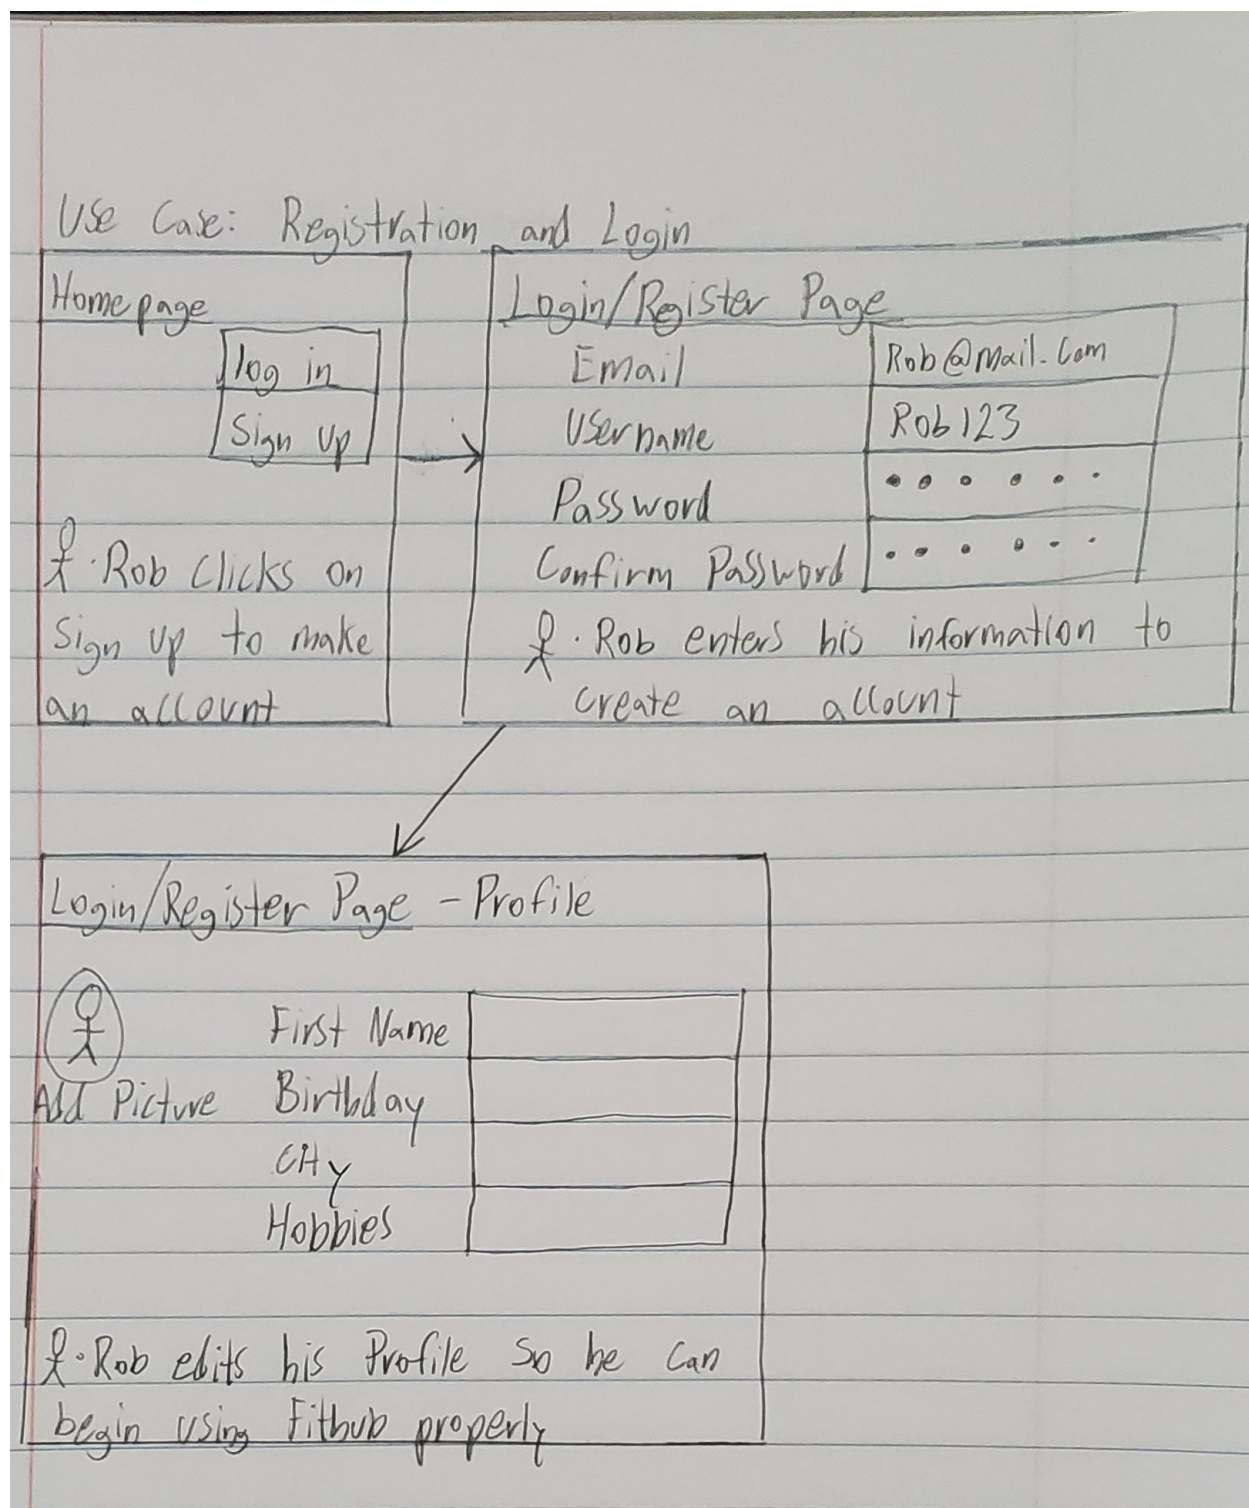 Use Case: Registration and Login
Homepage
log in
Sign up
Rob clicks on
sign up to make
an account
Login/Register Page
Email Rob@mail.com
Username Rob123
Password • • • • • •
Confirm Password • • • • • •
Rob enters his information to
create an account
Login/Register Page - Profile
First Name
Add Picture Birthday
City
Hobbies
Rob edits his Profile so he can
begin using Fithub properly